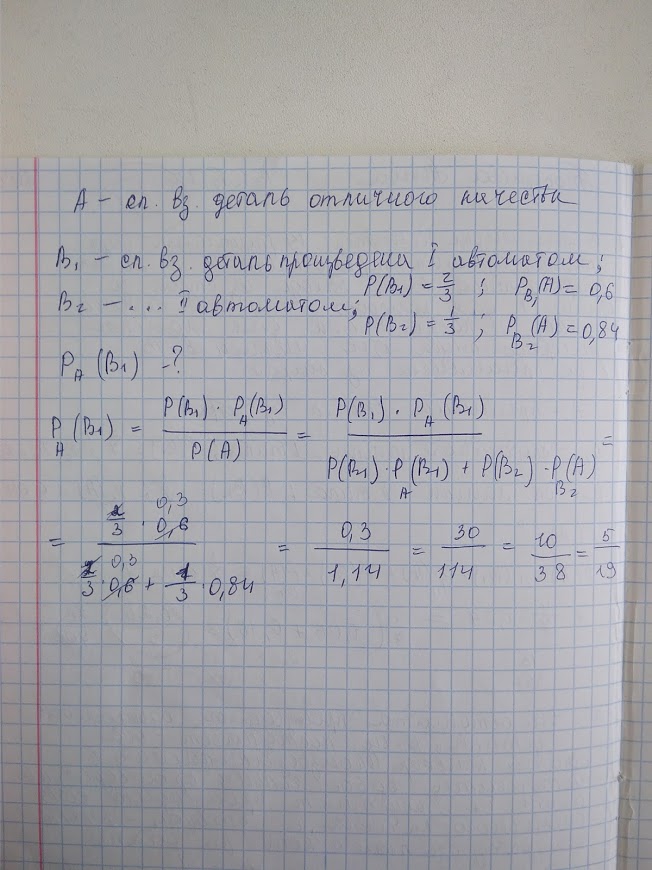 A – сп. вз. деталь отличного качества
B₁ – сп. вз. деталь произведена I автоматом;
B₂ – ... II автоматом;
P(B₁) = 2/3 ; P_B₁(A) = 0,6
P(B₂) = 1/3 ; P_B₂(A) = 0,84.
P_A(B₁) – ?
P_A(B₁) = P(B₁) · P_A(B₁) / P(A) = P(B₁) · P_A(B₁) / P(B₁) · P_A(B₁) + P(B₂) · P_B₂(A) =
= 2/3 · 0,6 0,3 / 2/3 · 0,6 0,3 + 1/3 · 0,84 = 0,3 / 1,14 = 30/114 = 10/38 = 5/19